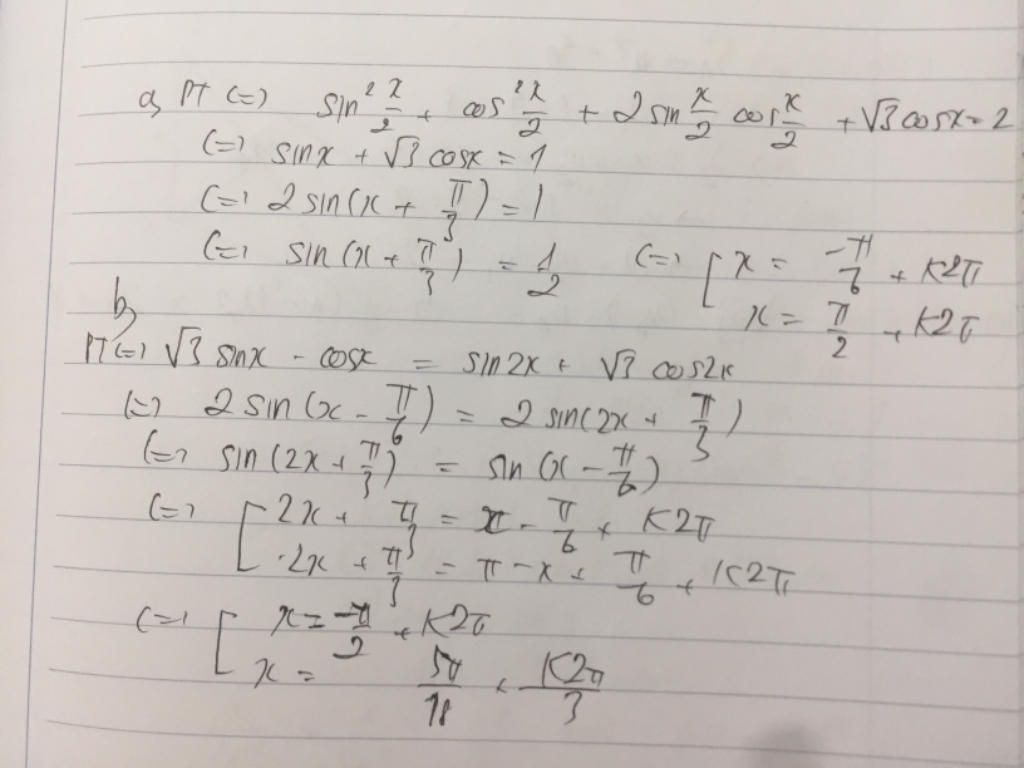 a, PT (=) sin² x/2 + cos² x/2 + 2 sin x/2 cos x/2 + √3 cosx = 2
(=) sinx + √3 cosx = 1
(=) 2 sin(x + π/3) = 1
(=) sin (x + π/3) = 1/2 (=) [ x = -π/6 + K2π
x = π/2 + K2π
b,
PT (=) √3 sinx - cosx = sin2x + √3 cos2x
(=) 2 sin (x - π/6) = 2 sin(2x + π/3)
(=) sin (2x + π/3) = sin (x - π/6)
(=) [ 2x + π/3 = x - π/6 + K2π
2x + π/3 = π - x + π/6 + K2π
(=) [ x = -π/2 + K2π
x = 5π/18 + K2π/3